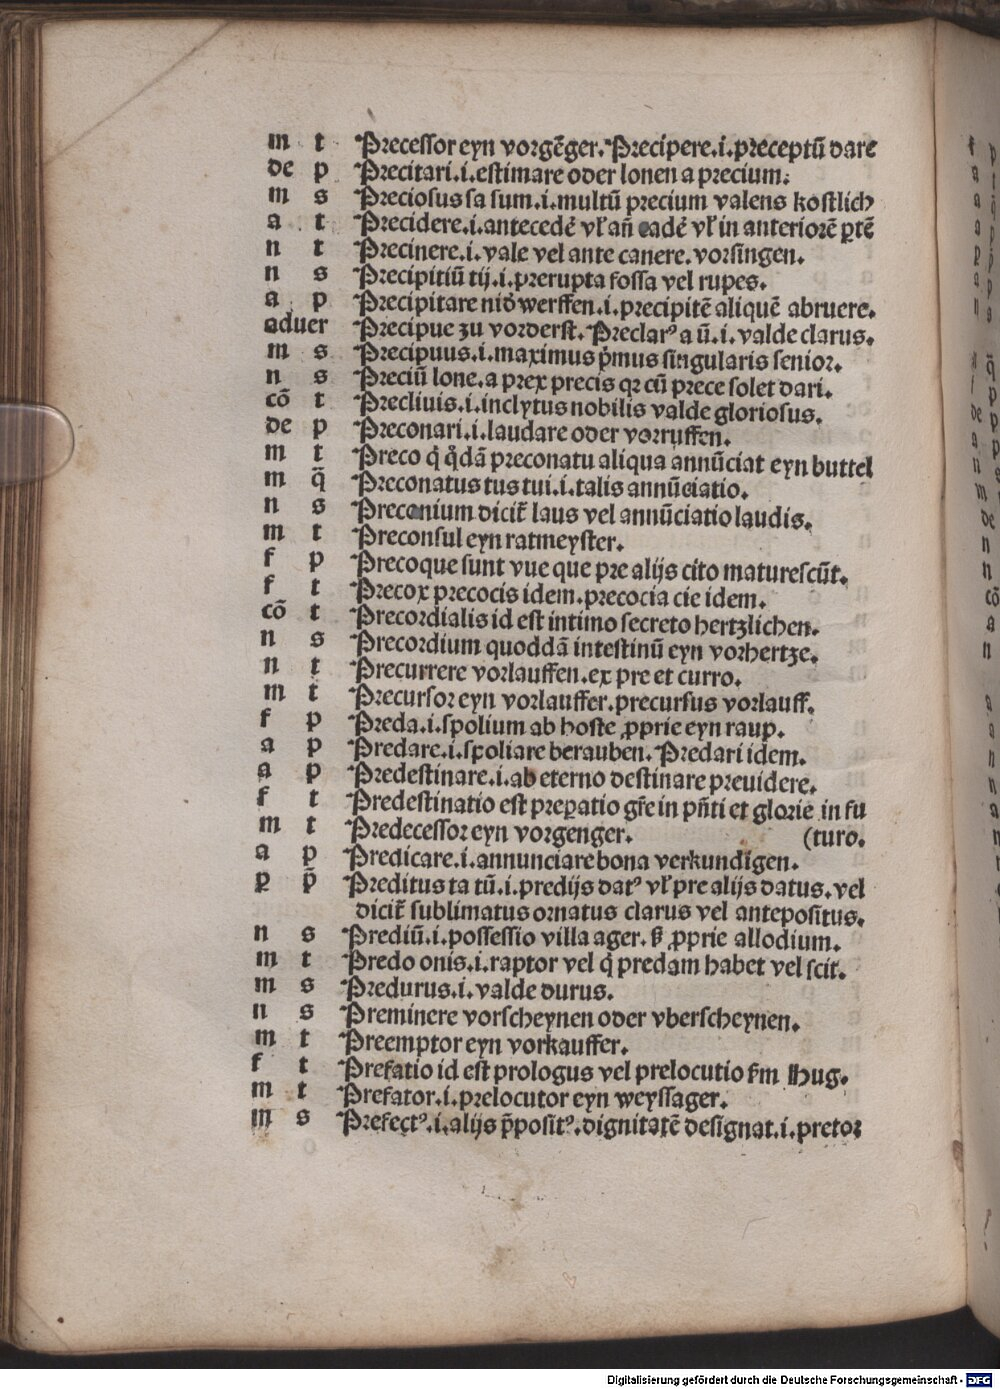 m t Precessor eyn vorgēger. Precipere .i. preceptū dare
de p Precitari .i. estimare oder lonen a precium:
m s Preciosus sa sum .i. multū precium valens kostlich
a t Precidere .i. antecedē vł añ cadē vł in anteriorē ꝑtē
n t Precinere .i. vale vel ante canere. vorsingen.
n s Precipitiū tij .i. prerupta fossa vel rupes.
a p Precipitare nid' werffen .i. precipitē aliquē abruere.
aduer Precipue zu vorderst. Preclarꝰ a ū .i. valde clarus.
m s Precipuus .i. maximus p̓mus singularis senior.
n s Preciū lone. a prex precis qꝛ cū prece solet dari.
cō t Precliuis .i. inclytus nobilis valde gloriosus.
de p Preconari .i. laudare oder vorruffen.
m t Preco q̓ q̓dā preconatu aliqua annūciat eyn buttel
m q̄ Preconatus tus tui .i. talis annūciatio.
n s Preconium dicit̄ laus vel annūciatio laudis.
m t Preconsul eyn ratmeyster.
f p Precoque sunt vue que pre alijs cito maturescūt.
f t Precox precocis idem. precocia cie idem.
cō t Precordialis id est intimo secreto hertzlichen.
n s Precordium quoddā intestinū eyn vorhertze.
n t Precurrere vorlauffen. ex pre et curro.
m t Precursor eyn vorlauffer. precursus vorlauff.
f p Preda .i. spolium ab hoste ꝓprie eyn raup.
a p Predare .i. spoliare berauben. Predari idem.
a p Predestinare .i. ab eterno destinare preuidere.
f t Predestinatio est preꝑatio gr̄e in pn̄ti et glorie in fu
m t Predecessor eyn vorgenger. (turo.
a p Predicare .i. annunciare bona verkundigen.
ꝑ p̄ Preditus ta tū .i. predijs datꝰ vł pre alijs datus. vel
dicit̄ sublimatus ornatus clarus vel antepositus.
n s Prediū .i. possessio villa ager. ß ꝓprie allodium.
m t Predo onis .i. raptor vel q̓ predam habet vel scit.
m s Predurus .i. valde durus.
n s Preminere vorscheynen oder vberscheynen.
m t Preemptor eyn vorkauffer.
f t Prefatio id est prologus vel prelocutio fm Hug.
m t Prefator .i. prelocutor eyn weyssager.
m s Prefectꝰ .i. alijs p̄positꝰ. dignitatē designat .i. pretor
Digitalisierung gefördert durch die Deutsche Forschungsgemeinschaft - DFG